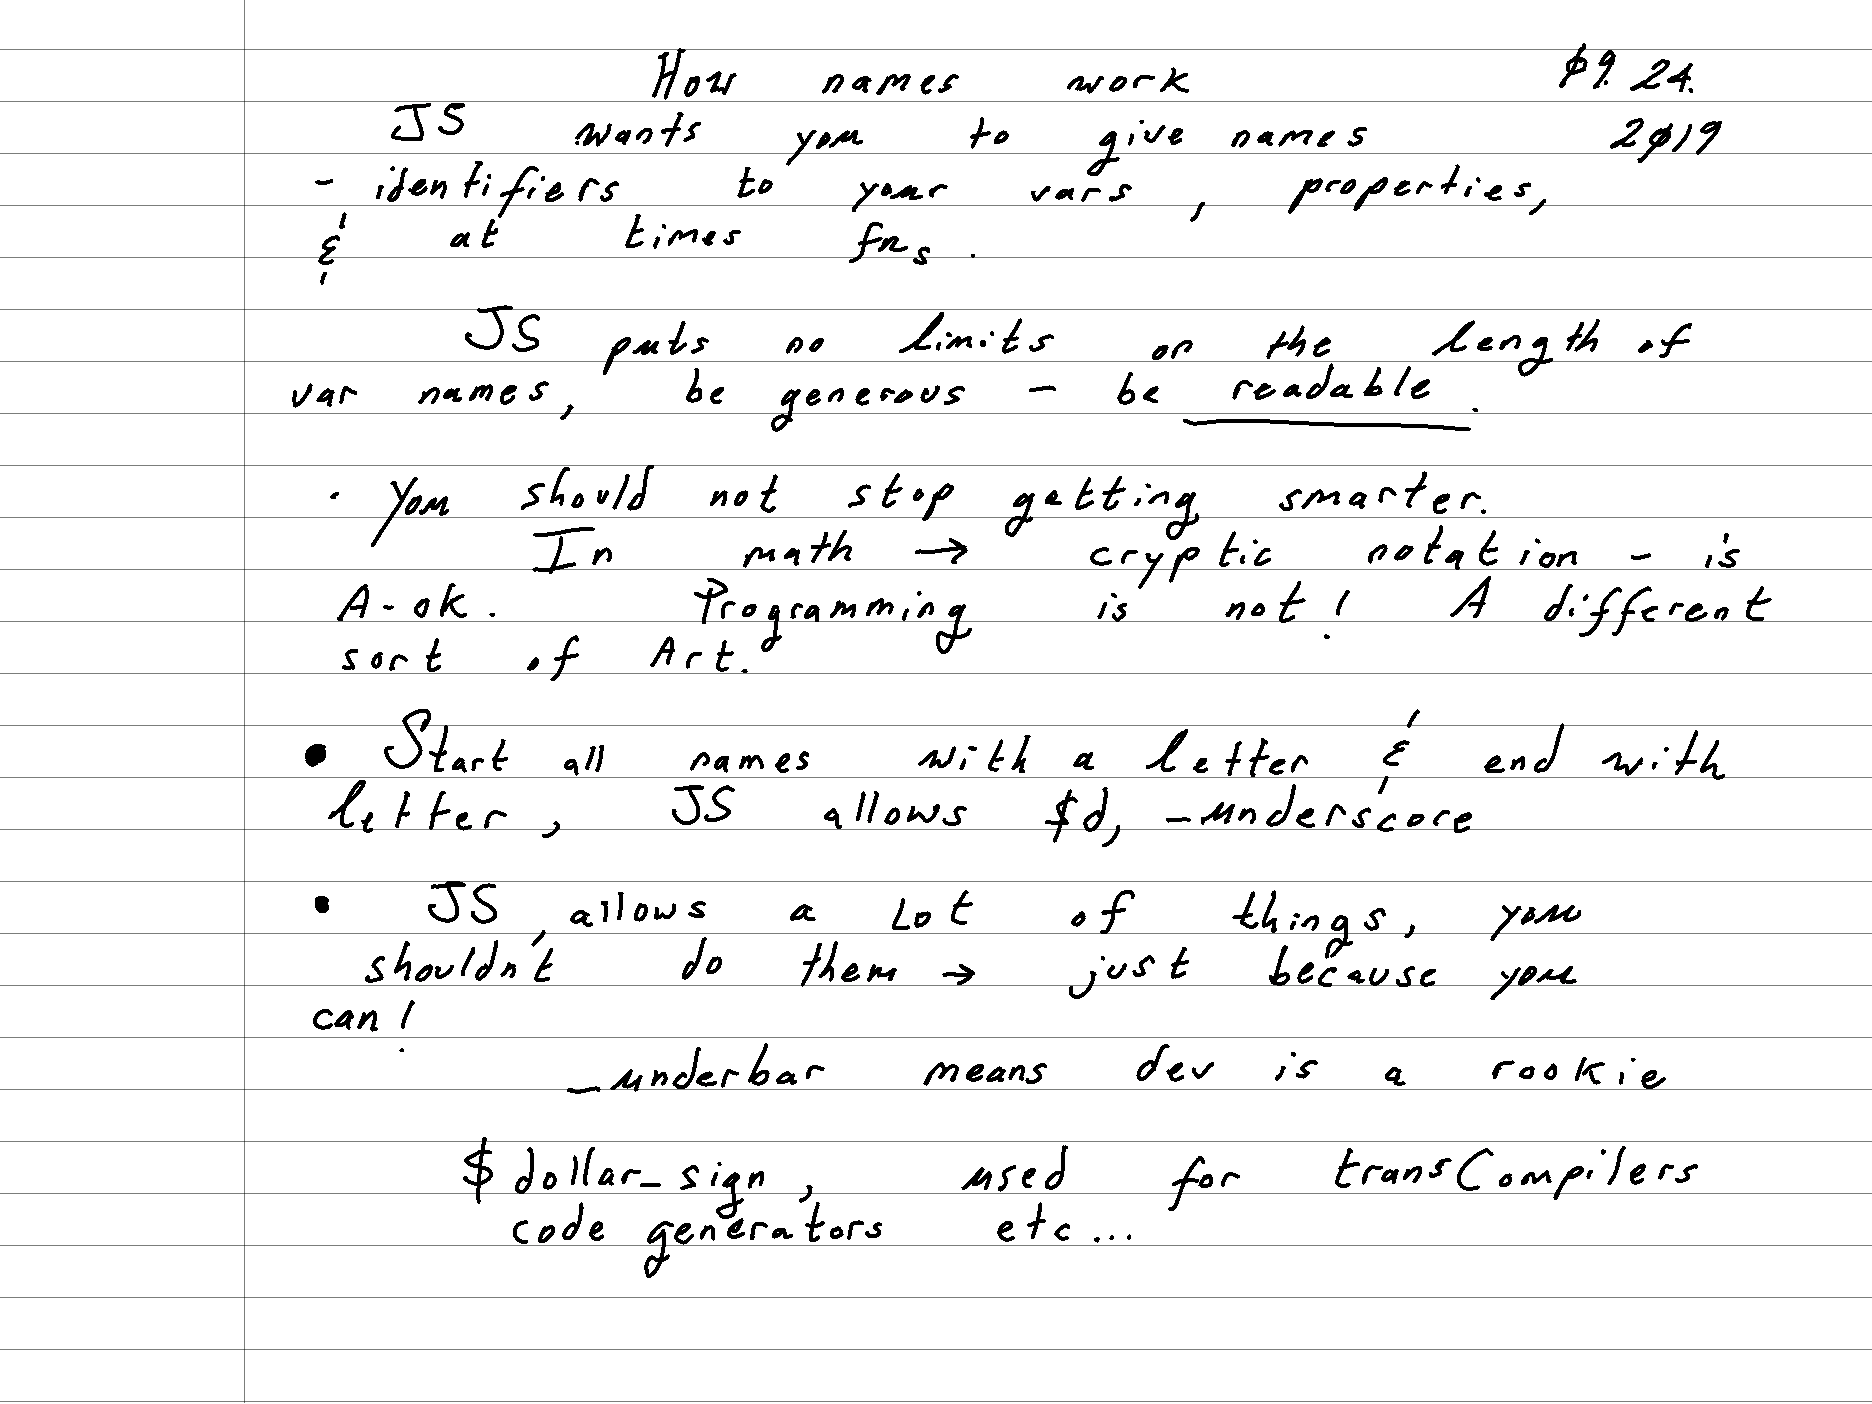 How names work 09. 24.
JS wants you to give names 2019
- identifiers to your vars, properties,
& at times fns.
JS puts no limits on the length of
var names, be generous - be readable.
· You should not stop getting smarter.
In math → cryptic notation - is
A-ok. Programming is not! A different
sort of Art.
• Start all names with a letter & end with
letter, JS allows $d, _underscore
• JS allows a Lot of things, you
shouldn't do them → just because you
can!
_underbar means dev is a rookie
$ dollar_sign, used for transCompilers
code generators etc...